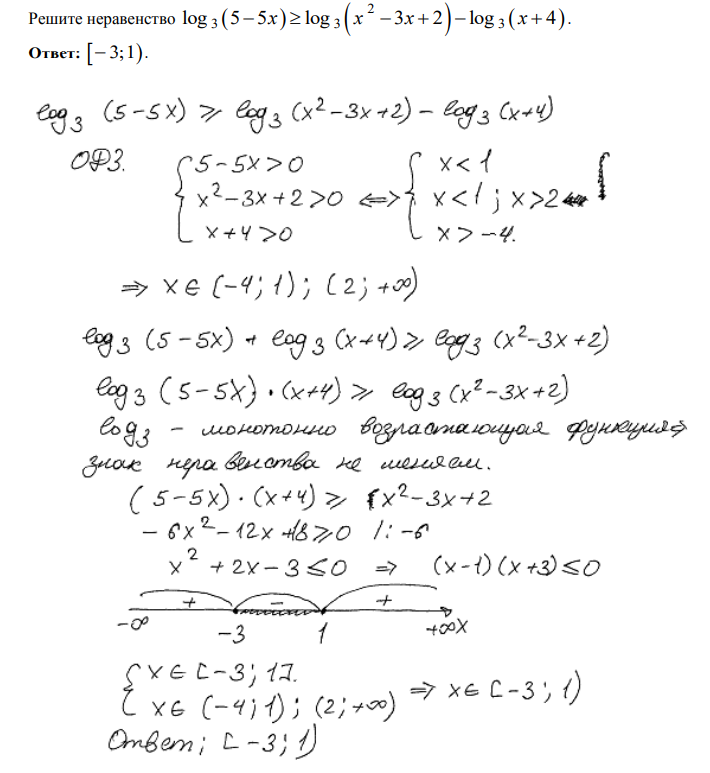 Решите неравенство log₃(5−5x) ≥ log₃(x² −3x+2) − log₃(x+4).
Ответ: [−3;1).
log₃ (5-5x) ≥ log₃ (x²-3x+2) - log₃ (x+4)
ОДЗ. { 5-5x>0 ; x²-3x+2>0 ; x+4>0 ⇔ { x<1 ; x<1 ; x>2 ; x>-4.
⇒ x∈ (-4;1); (2;+∞)
log₃ (5-5x) + log₃ (x+4) ≥ log₃ (x²-3x+2)
log₃ (5-5x)·(x+4) ≥ log₃ (x²-3x+2)
log₃ - монотонно возрастающая функция ⇒
знак неравенства не меняем.
(5-5x)·(x+4) ≥ x²-3x+2
-6x²-12x+18≥0 /:-6
x²+2x-3≤0 ⇒ (x-1)(x+3)≤0
+ - +
-∞ -3 1 +∞ x
{ x∈[-3;1].
x∈ (-4;1); (2;+∞) ⇒ x∈[-3;1)
Ответ; [-3;1)